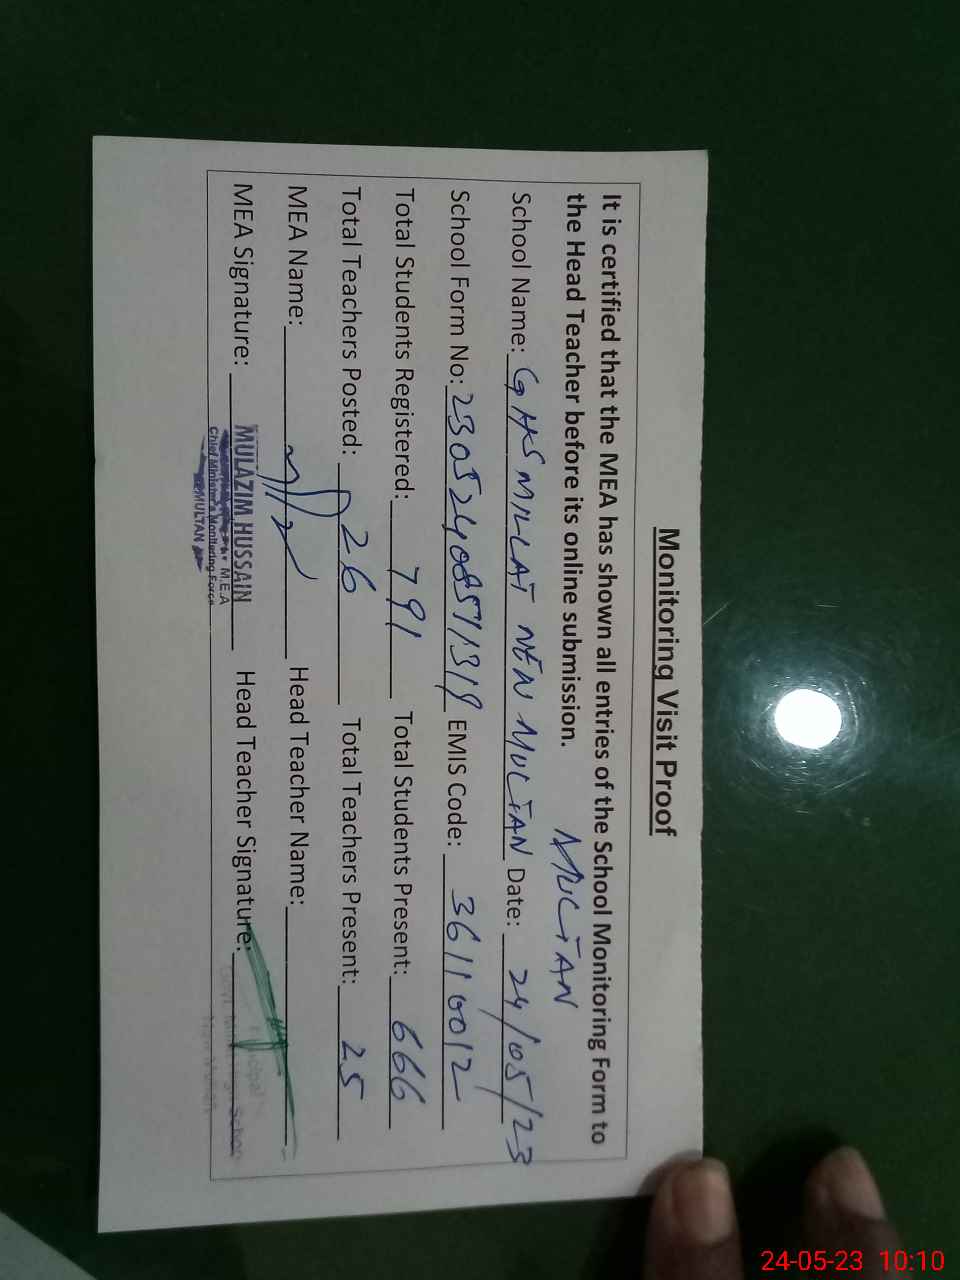 Monitoring Visit Proof
It is certified that the MEA has shown all entries of the School Monitoring Form to
the Head Teacher before its online submission.
MULTAN
School Name: GHS MILLAT NEW MULTAN Date: 24/05/23
School Form No: EMIS Code: 36110012
Total Students Registered: 791 Total Students Present: 666
Total Teachers Posted: 26 Total Teachers Present: 25
MEA Name: Head Teacher Name:
MEA Signature: Head Teacher Signature:
MULAZIM HUSSAIN
M.E.A
Chief Minister's Monitoring Force
MULTAN
24-05-23 10:10